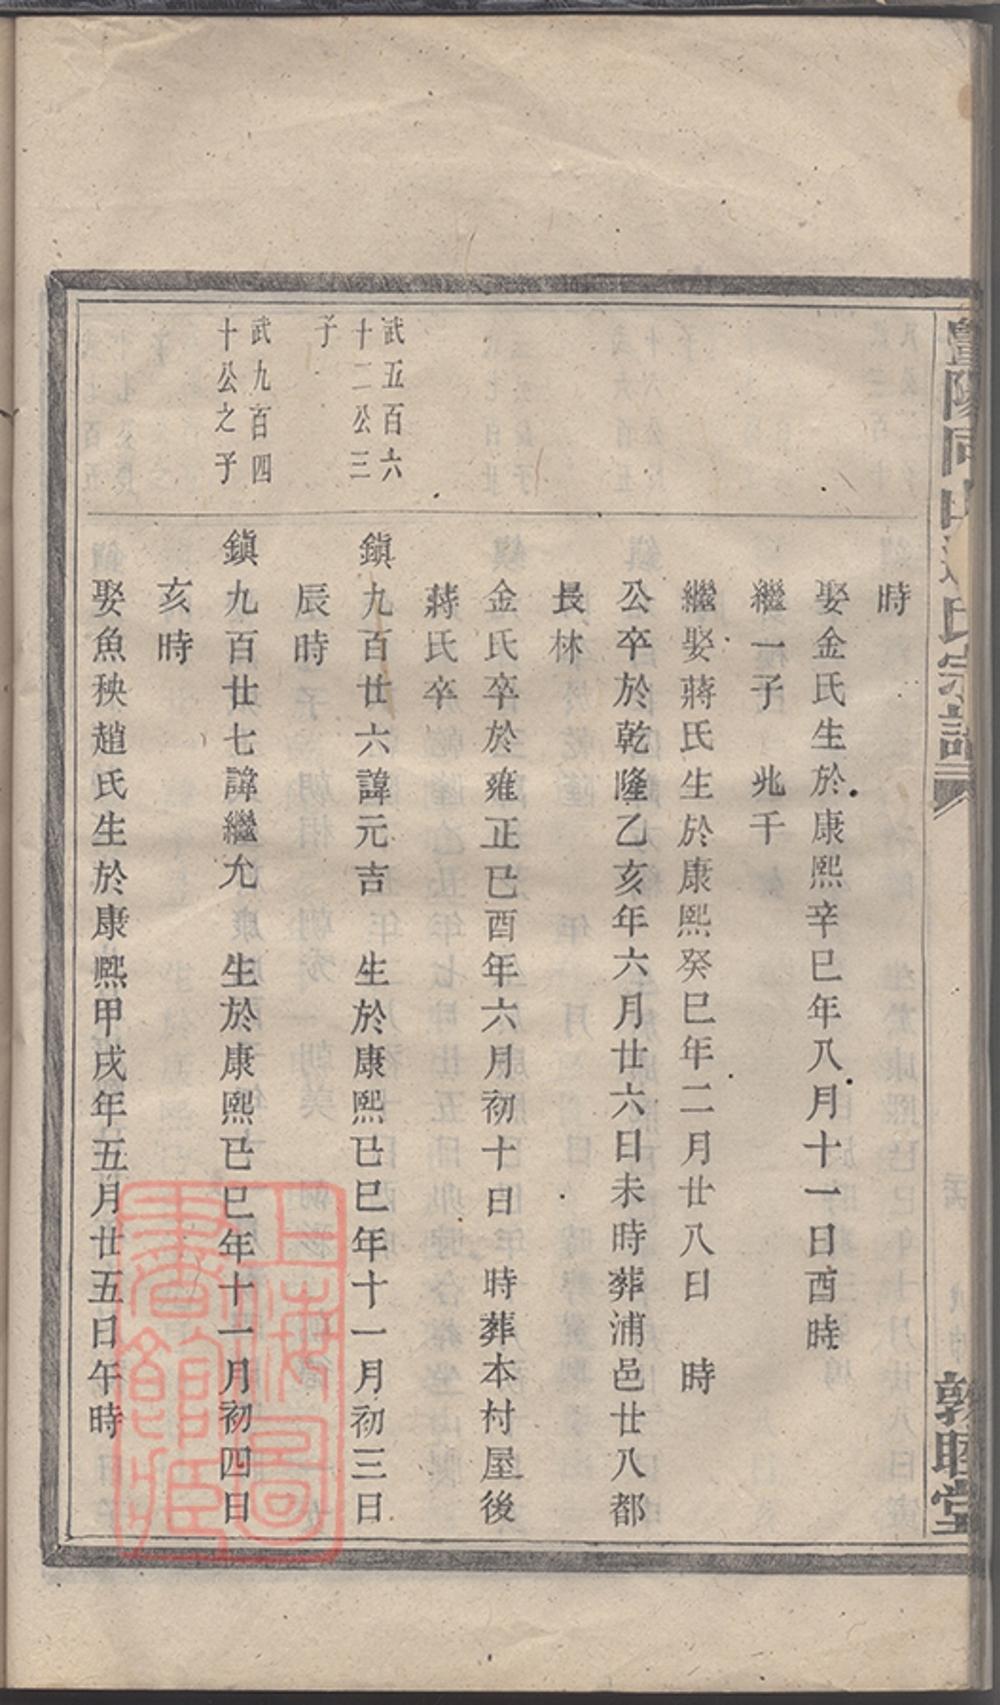 暨陽同山 氏宗譜
敦睦堂
時
娶金氏生於康熙辛巳年八月十一日酉時
繼一子 兆千
繼娶蔣氏生於康熙癸巳年二月廿八日 時
公卒於乾隆乙亥年六月廿六日未時葬浦邑廿八都
長林
金氏卒於雍正已酉年六月初十日 時葬本村屋後
蔣氏卒
武五百六
十二公三
子
鎮九百廿六諱元吉 生於康熙已巳年十一月初三日
辰時
武九百四
十公之子
鎮九百廿七諱繼允 生於康熙已巳年十一月初四日
亥時
娶魚秧趙氏生於康熙甲戌年五月廿五日午時
上海圖
書館藏